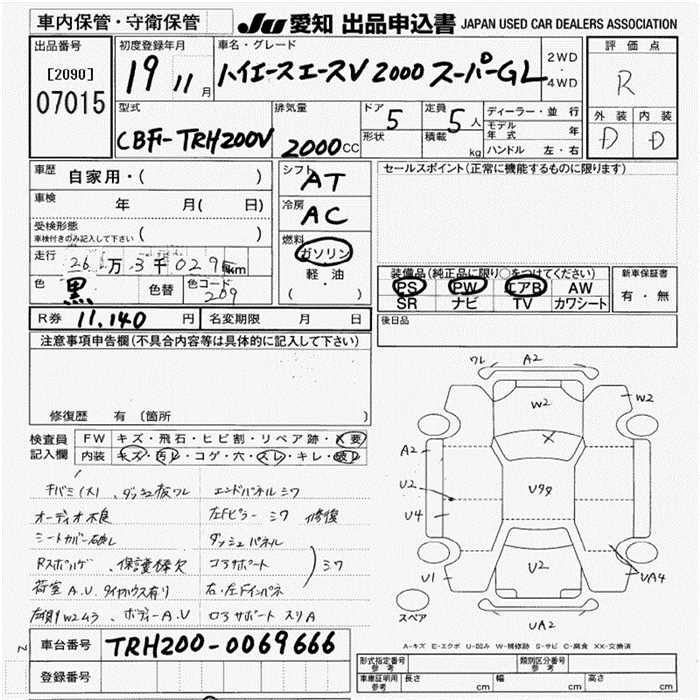 車内保管・守衛保管
JU 愛知 出品申込書 JAPAN USED CAR DEALERS ASSOCIATION
出品番号
[2090]
07015
初度登録年月
19 11月
車名・グレード
ハイエースエースV 2000 スーパーGL
2WD
・
4WD
評価点
R
外装 内装
D D
型式
CBF-TRH200V
排気量
2000cc
ドア 5
形状
定員 5人
積載 kg
ディーラー・並行
モデル年式 年
ハンドル 左・右
車歴 自家用・( )
車検 年 月( 日)
受検形態
車検付きのみ記入して下さい ( )
走行 26万3千029km
色 黒 色替 色コード 209
シフト AT
冷房 AC
燃料
ガソリン
軽・油
( ・ )
セールスポイント(正常に機能するものに限ります)
装備品(純正品に限り○をつけてください)
PS PW エアB AW
SR ナビ TV カワシート
新車保証書
有・無
R券 11,140円 名変期限 月 日
後日品
注意事項申告欄(不具合内容等は具体的に記入して下さい)
修復歴 有(箇所 )
検査員記入欄
FW キズ・飛石・ヒビ割・リペア跡・X要
内装 キズ・汚レ・コゲ・穴・スレ・キレ・破レ
キバミ(大)、ダッシュ板ワレ
オーディオ不良
シートカバー破レ
荷室A.U.タイヤハウス有り
左側W2ムラ、ボディーA.U
エンドパネルシワ
左Fピラー シワ 修復
ダッシュパネル
コアサポート
右・左Fインパネ
シワ
コアサポート スリA
ワレ A2
W2
W2
A2
U2
U4
U9
U1
U2
UA4
UA2
スペア
A-キズ E-エクボ U-凹み W-補修跡 S-サビ C-腐食 XX-交換済
車台番号 TRH200-0069666
登録番号
形式指定番号
参考
類別区分番号
参考
車庫証明用
参考
長さ cm 幅 cm 高さ cm